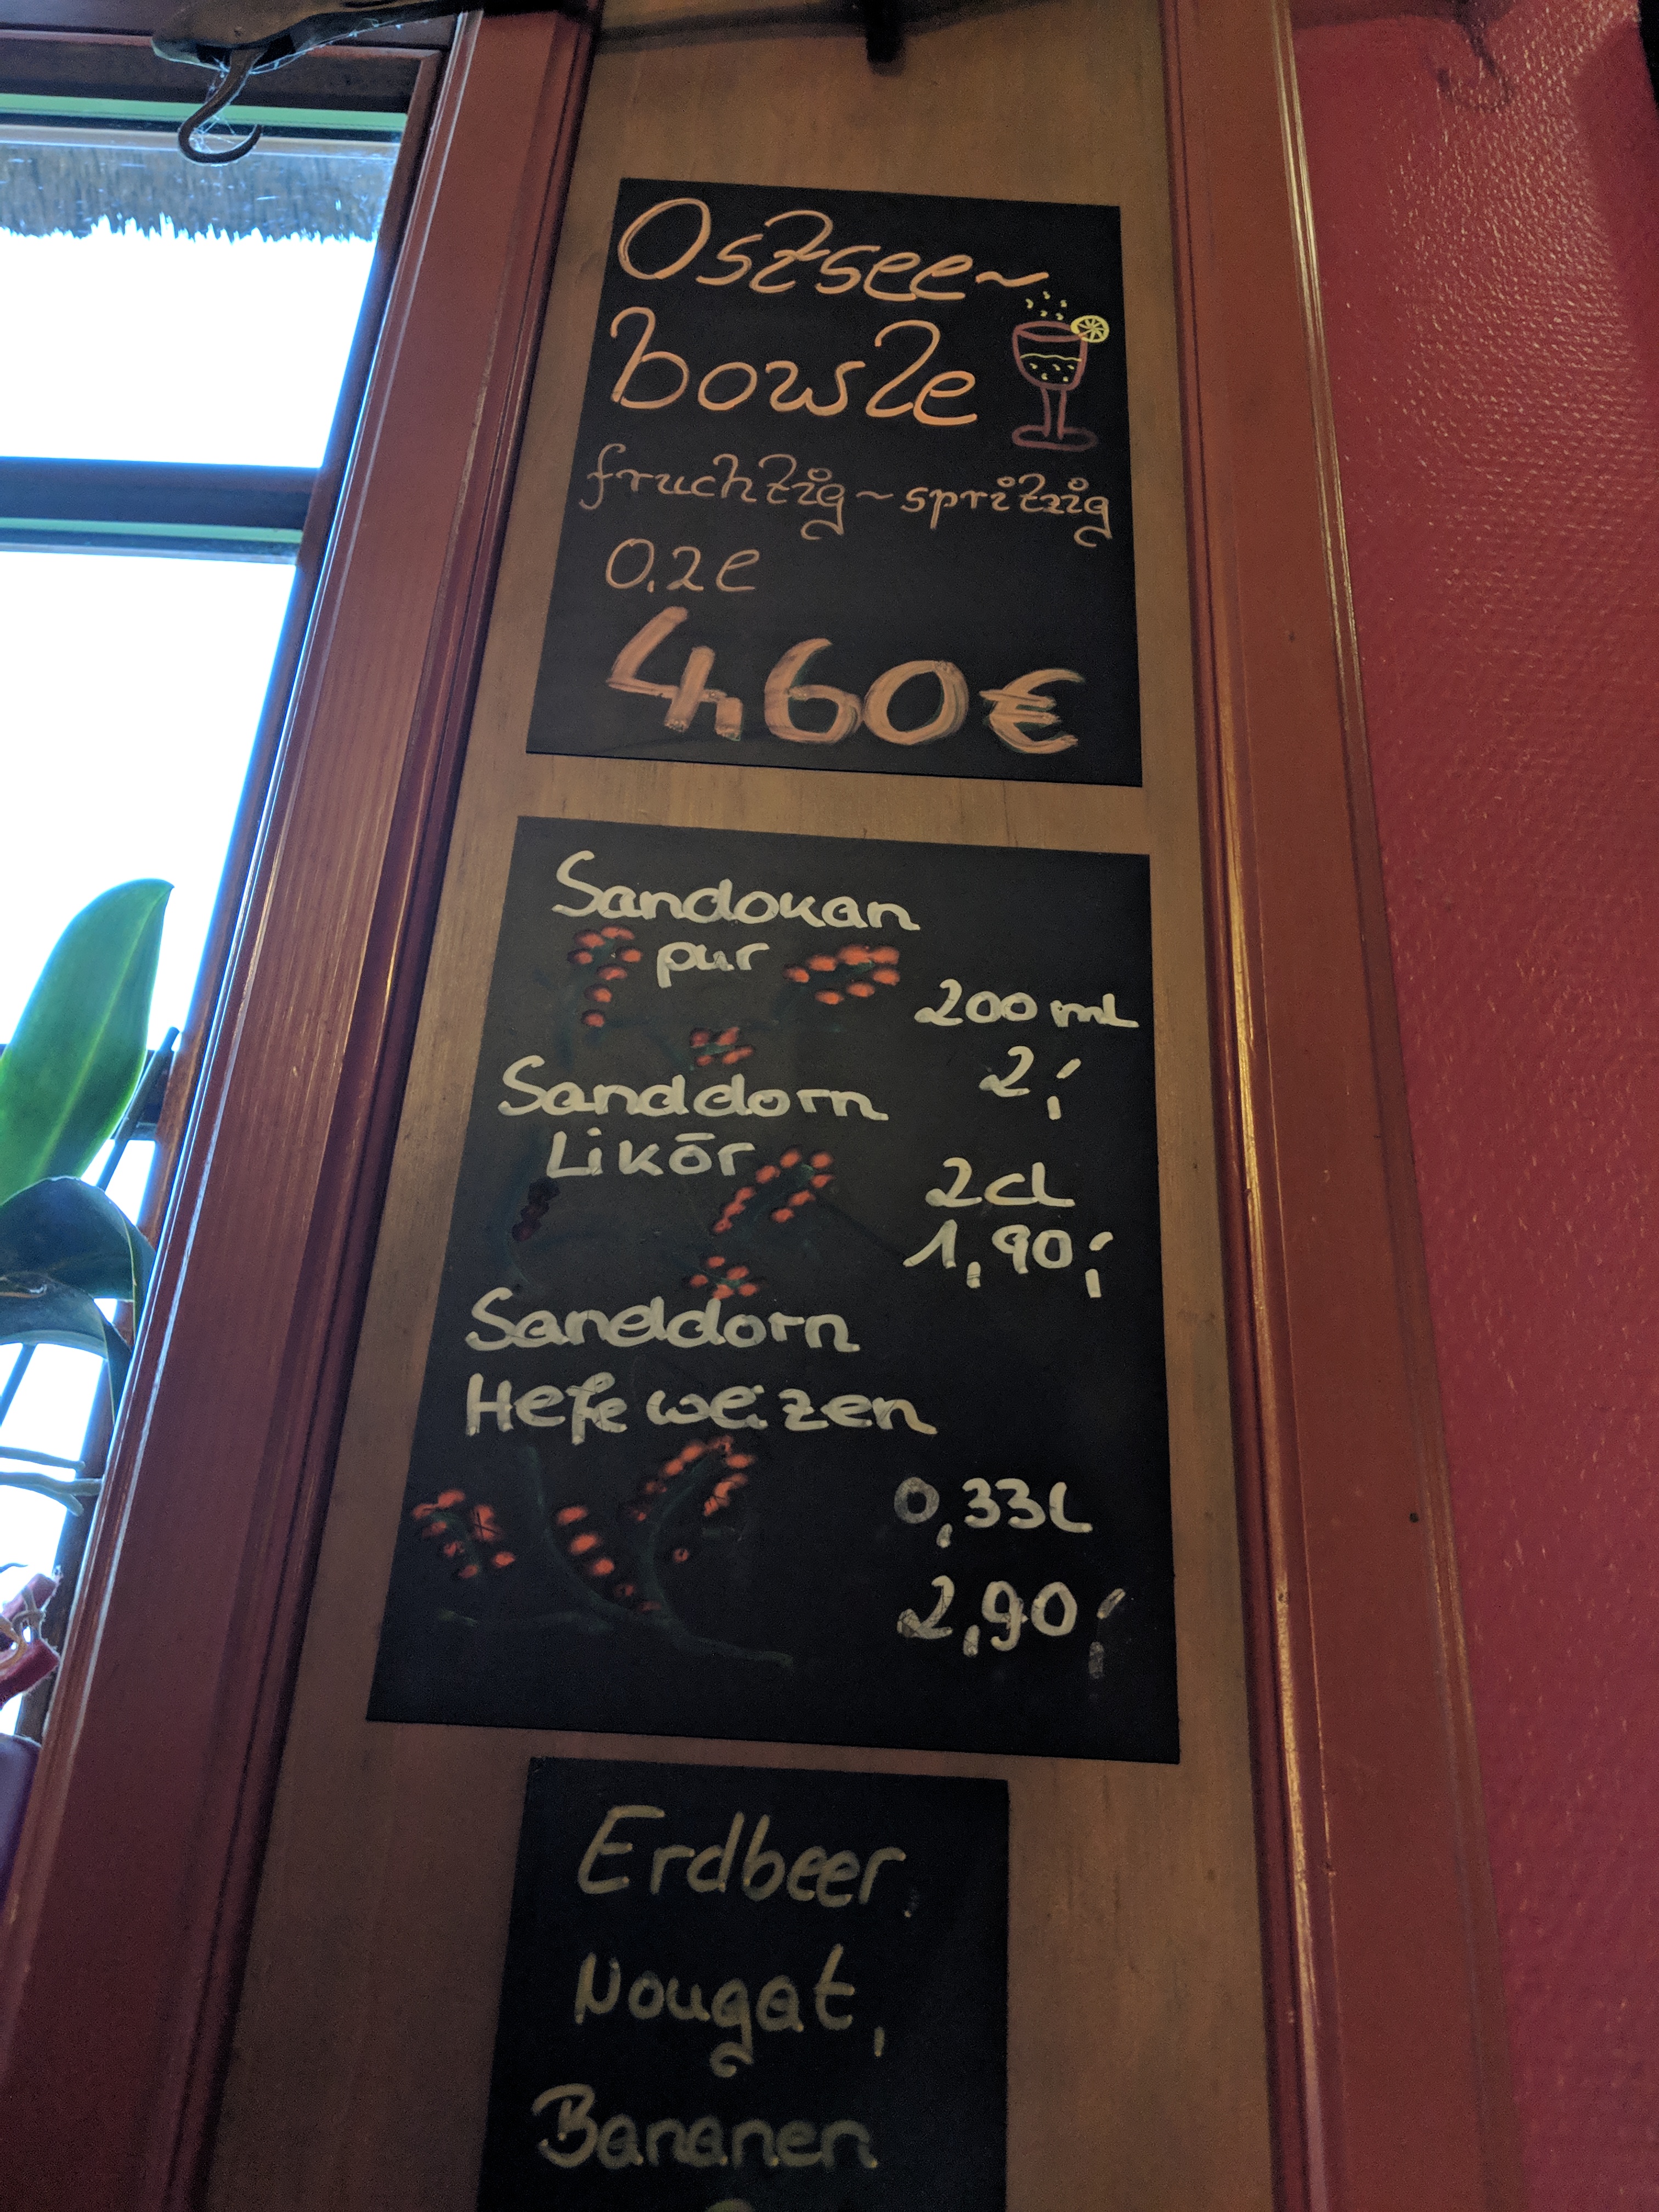 Ostsee~
bowle
fruchtig~spritzig
0,2l
4,60€
Sandokan
pur
200 ml
2,-
Sanddorn
Likör
2cl
1,90,-
Sanddorn
Hefeweizen
0,33l
2,90,-
Erdbeer,
Nougat,
Bananen